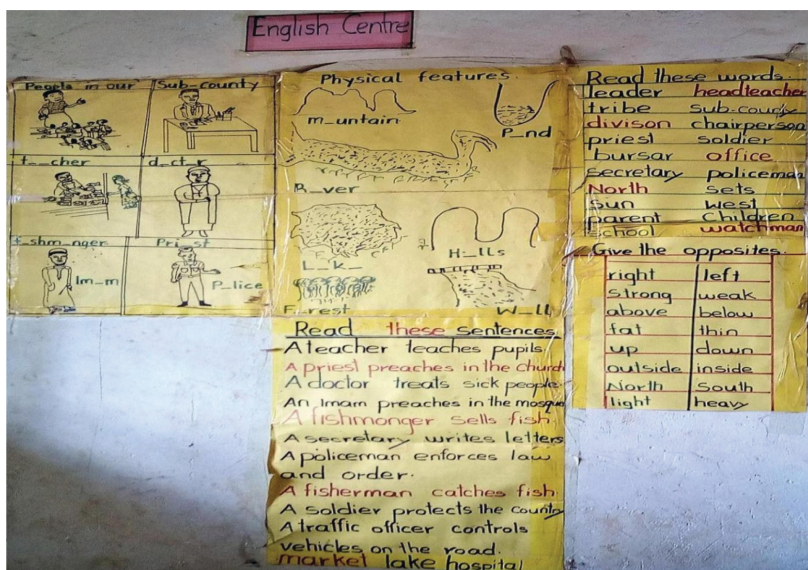 English Centre
People in our Sub-county
t__cher d_ct_r
f_shm_nger Pri_st
Im_m P_lice
Physical features.
m_untain
P_nd
R_ver
L_k_
H_lls
F_rest
W_ll
Read these sentences
A teacher teaches pupils.
A priest preaches in the church
A doctor treats sick people.
An Imam preaches in the mosque
A fishmonger sells fish.
A secretary writes letters
A policeman enforces law
and order.
A fisherman catches fish.
A soldier protects the county
A traffic officer controls
vehicles on the road.
market lake hospital
Read these words.
leader headteacher
tribe sub-county
divison chairperson
priest soldier
bursar office
secretary policeman
North sets
sun west
parent Children
school watchman
Give the opposites.
right left
strong weak
above below
fat thin
up down
outside inside
North South
light heavy